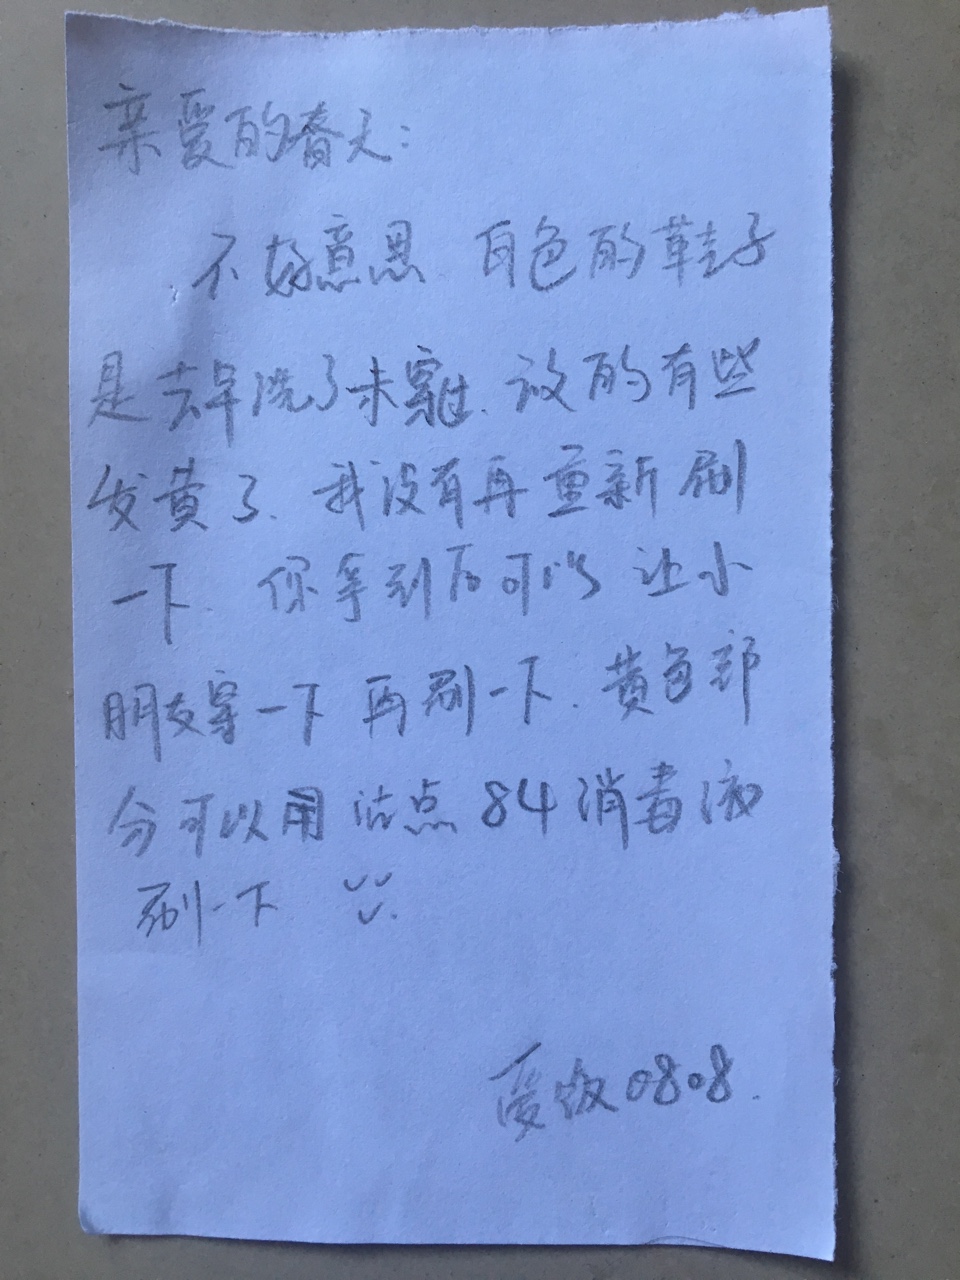 亲爱的春天:
不好意思 白色的鞋子
是去年洗了未穿. 放的有些
发黄了. 我没有再重新刷
一下. 你拿到后可以 让小
朋友穿一下 再刷一下. 黄色部
分可以用 沾点 84 消毒液
刷一下
0808.